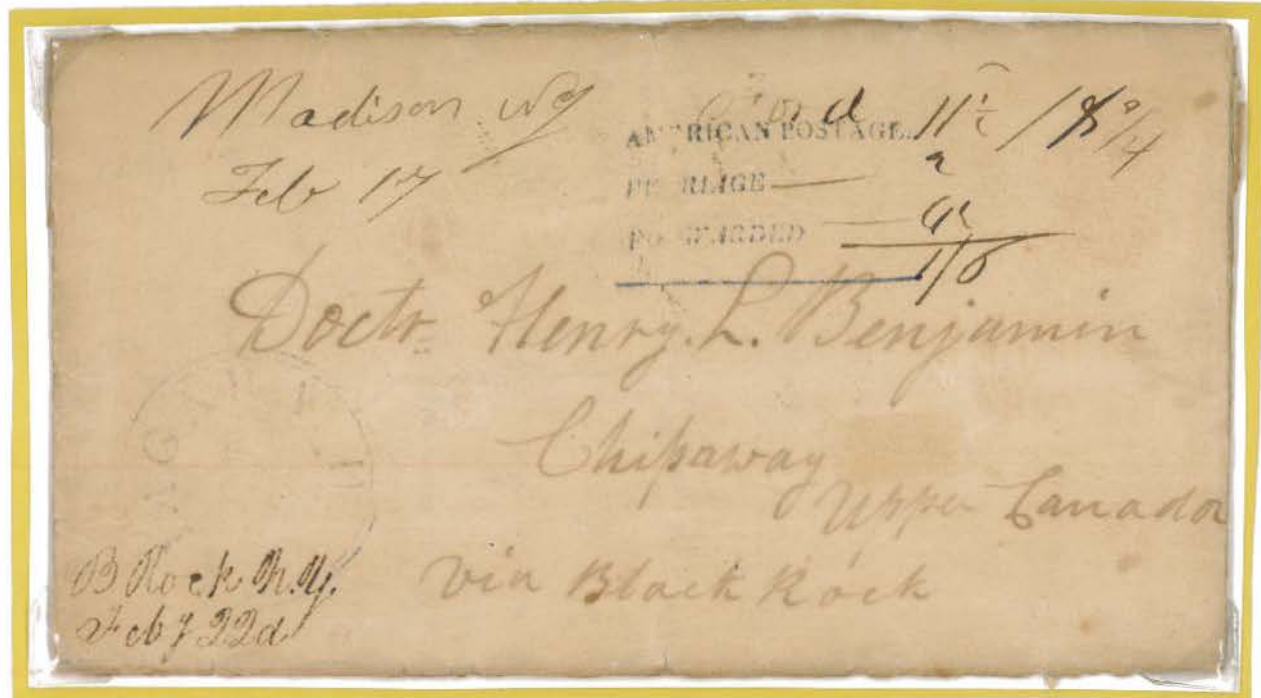 Madison NY
Feb 17
AMERICAN POSTAGE 11½ 18¾
FERRIAGE 2
FORWARDED 4½
1/6
Doctr. Henry. L. Benjamin
Chipaway
Upper Canada
via Black Rock
B Rock N.Y.
Feby 22d